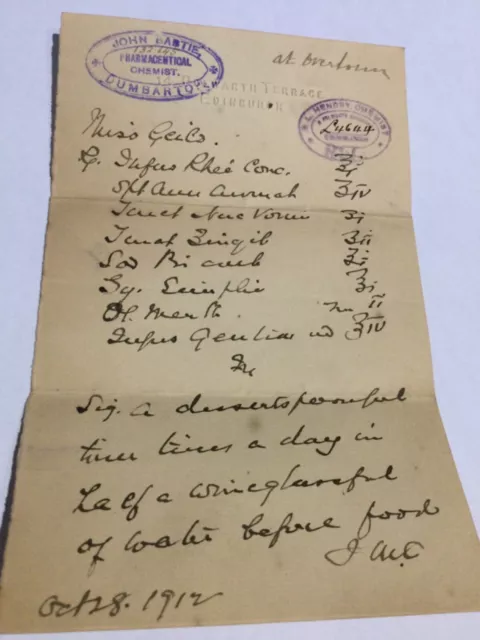 JOHN BASTIE,
132195
PHARMACEUTICAL
CHEMIST.
DUMBARTON
at Overtoun
TERRACE
EDINBURGH
R. L. HENDRY, CHEMIST
L4644
Miss Geils.
R. Infus Rhei Conc. ʒi
Spt Amm Aromat ʒiv
Tinct Nuc Vom ʒi
Tinct Zingib ʒii
Sod Bi carb ʒi
Sy. Simplic ℥i
Ol. Menth m ii
Infus Gentian ad ℥iv
M
Sig. a dessertspoonful
three times a day in
half a wineglassful
of water before food
Oct 28. 1912